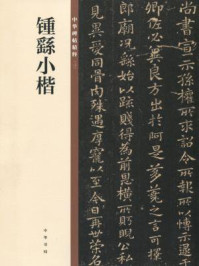 锺繇小楷
中華碑帖精粹
尚書宣示孫權所求詔令所報所以博示逮于
卿佐必冀良方出於阿是芻蕘之言可擇
郎廟況繇始以疏賤得為前恩橫所盼睨公私
見異愛同骨肉殊遇厚寵以至今日再世榮名
中華書局